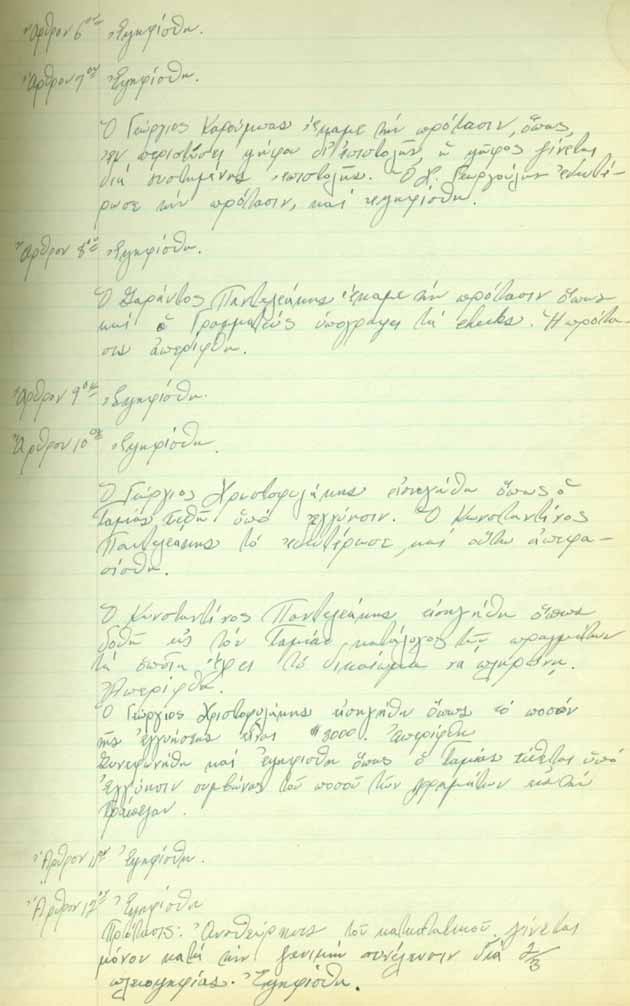 Ἄρθρον 6ον Ἐψηφίσθη.
Ἄρθρον 7ον Ἐψηφίσθη.
Ὁ Γεώργιος Καρούμπας ἔκαμε τὴν πρότασιν, ὅπως,
ἐν περιπτώσει ψήφου δι' ἐπιστολῆς, ἡ ψῆφος γίνεται
διὰ συστημένης ἐπιστολῆς. Ὁ Χ. Γεωργούλης ἐσεκοντά-
ρωσε τὴν πρότασιν, καὶ ἐψηφίσθη.
Ἄρθρον 8ον Ἐψηφίσθη.
Ὁ Σαράντος Παντελεάκης ἔκαμε τὴν πρότασιν ὅπως
καὶ ὁ Γραμματεὺς ὑπογράφει τὰ checks. Ἡ πρότα-
σις ἀπερίφθη.
Ἄρθρον 9ον Ἐψηφίσθη.
Ἄρθρον 10ον Ἐψηφίσθη.
Ὁ Γεώργιος Χριστοφυλάκης εἰσηγήθη ὅπως ὁ
Ταμίας τεθῆ ὑπὸ ἐγγύησιν. Ὁ Κωνσταντῖνος
Παντελεάκης τὸ καὶ οὕτω ἀπεφα-
σίσθη.
Ὁ Κωνσταντῖνος Παντελεάκης εἰσηγήθη ὅπως
δοθῆ εἰς τὸν Ταμίαν κατάλογος τῶν πραγμάτων
τὰ ὁποῖα ἔχει τὸ δικαίωμα νὰ πληρώνῃ.
Ἀπερίφθη.
Ὁ Γεώργιος Χριστοφυλάκης εἰσηγήθη ὅπως τὸ ποσὸν
τῆς ἐγγυήσεως εἶναι $3000. Ἀπερίφθη
Συνεφωνήθη καὶ ἐψηφίσθη ὅπως ὁ Ταμίας τίθεται ὑπὸ
ἐγγύησιν συμφώνως τοῦ ποσοῦ τῶν χρημάτων κατὰ τὴν
Τράπεζαν.
Ἄρθρον 11ον Ἐψηφίσθη.
Ἄρθρον 12ον Ἐψηφίσθη
Πρότασις: Ἀναθεώρησις τοῦ καταστατικοῦ γίνεται
μόνον κατὰ τὴν γενικὴν συνέλευσιν διὰ 2/3
πλειοψηφίας. Ἐψηφίσθη.